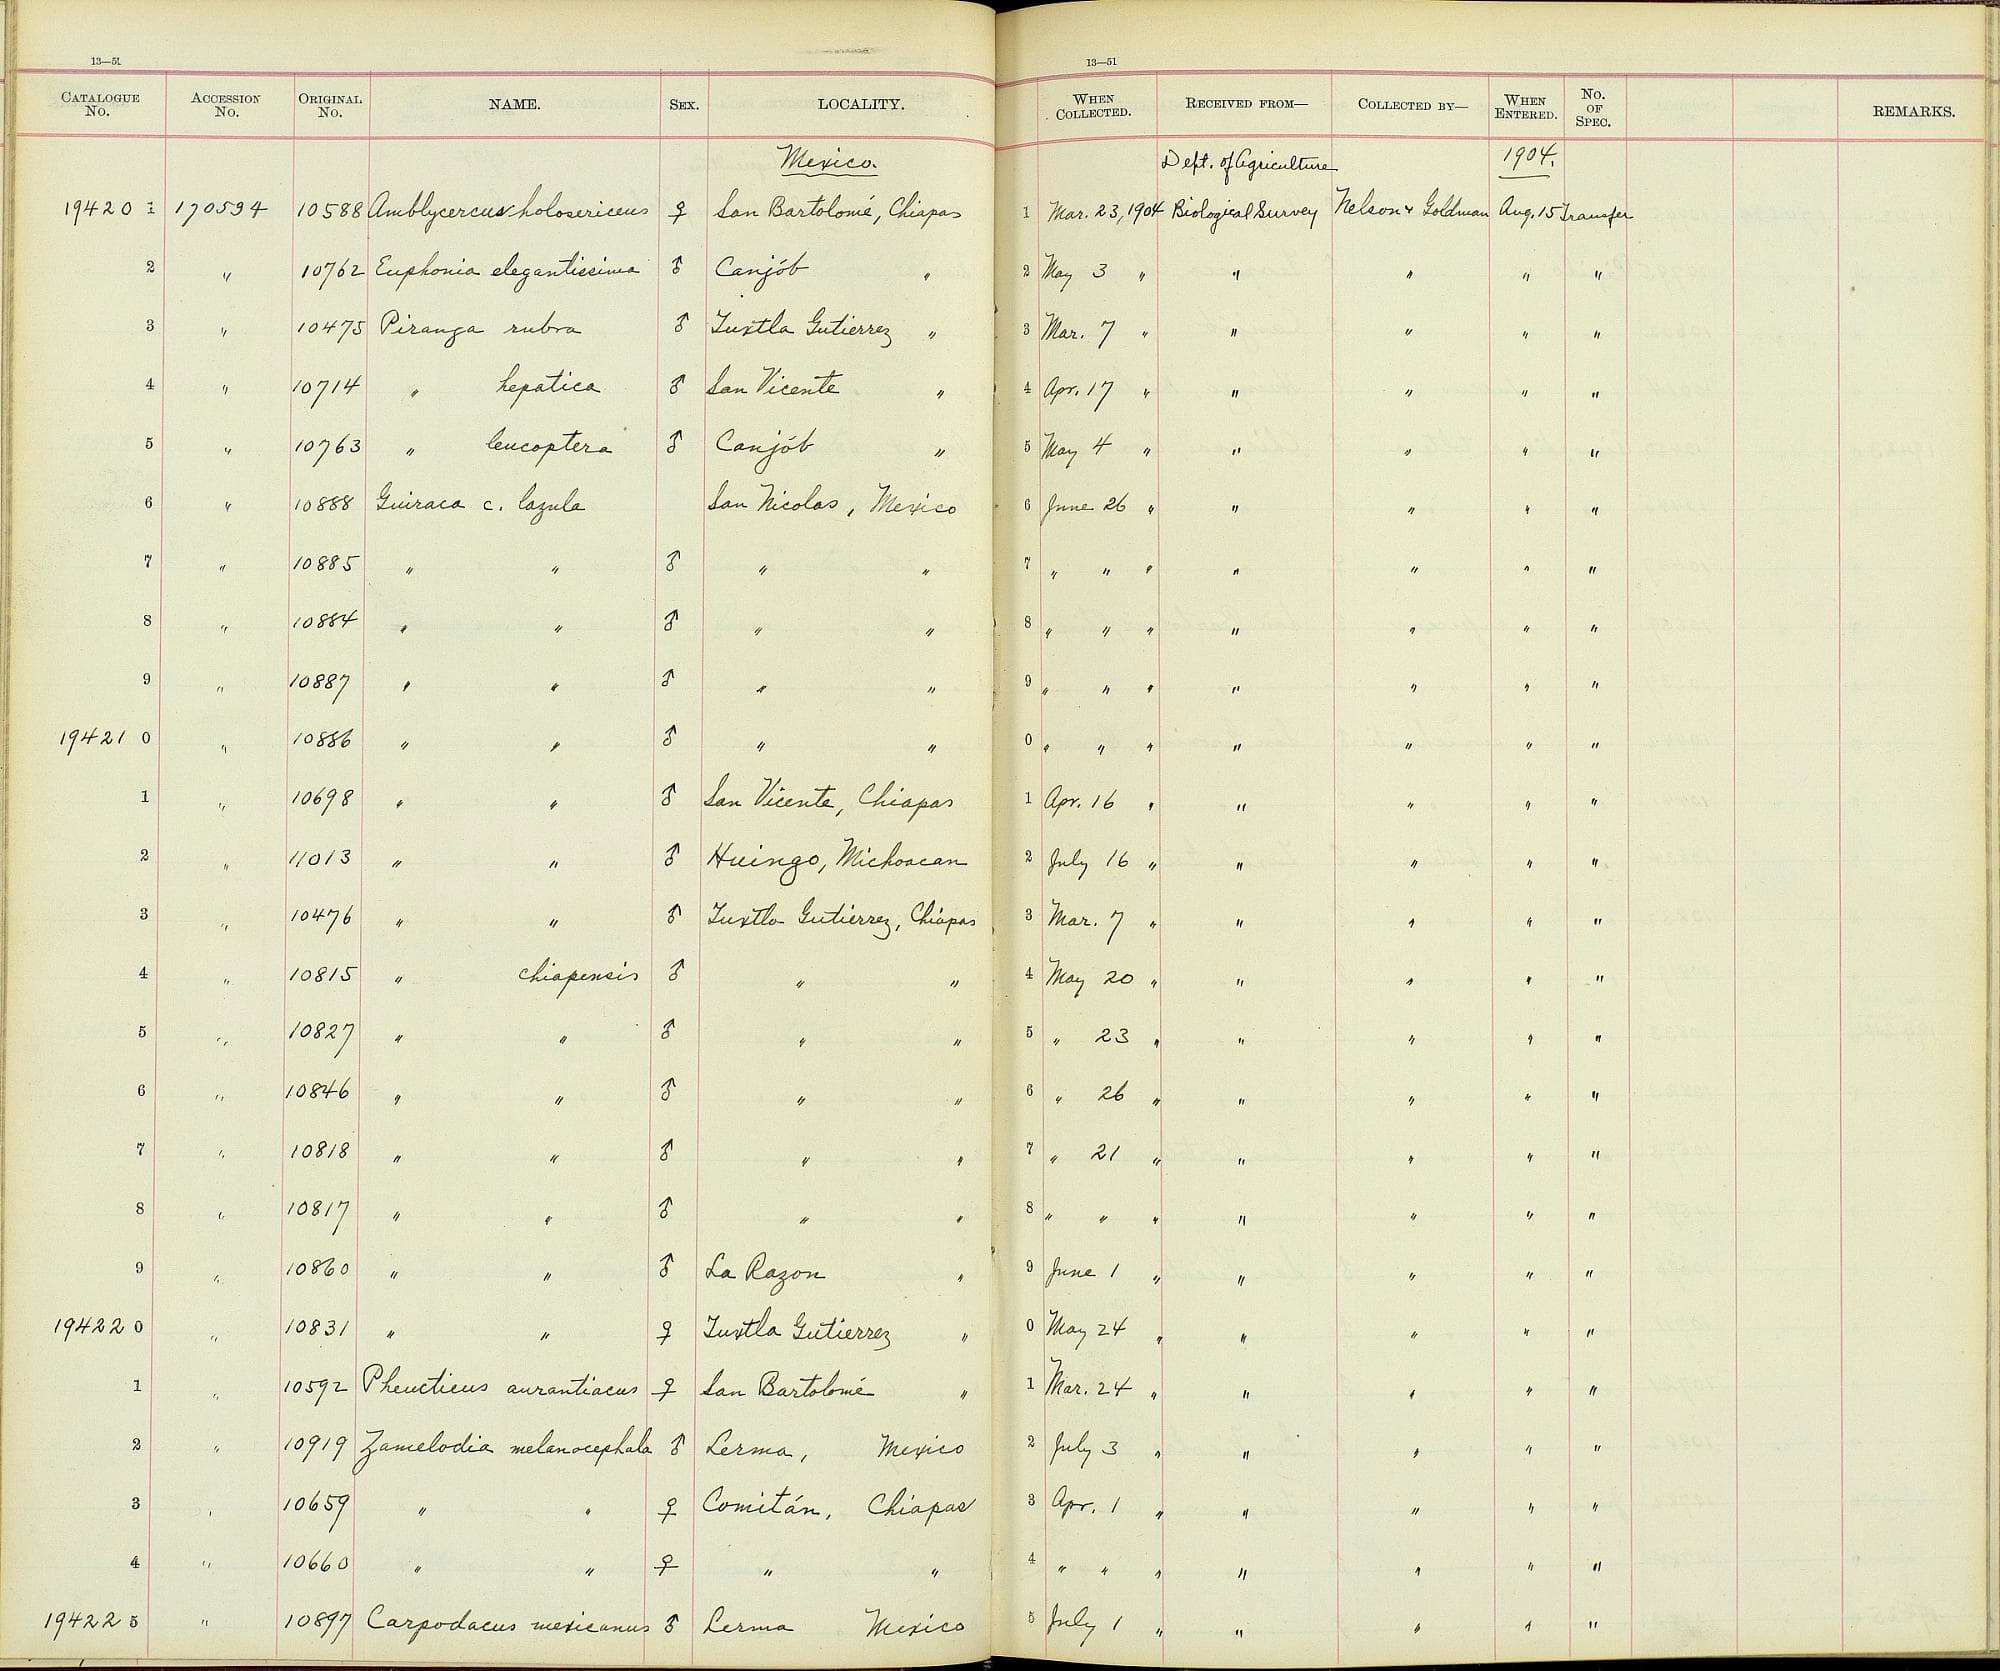 13—51 13—51
CATALOGUE No. ACCESSION No. ORIGINAL No. NAME. SEX. LOCALITY. WHEN COLLECTED. RECEIVED FROM— COLLECTED BY— WHEN ENTERED. No. OF SPEC. REMARKS.
Mexico. Dept. of Agriculture 1904.
19420 1 170594 10588 Amblycercus holosericeus ♀ San Bartolomé, Chiapas 1 Mar. 23, 1904 Biological Survey Nelson & Goldman Aug. 15 Transfer
2 " 10762 Euphonia elegantissima ♂ Canjób " 2 May 3 " " " " "
3 " 10475 Piranga rubra ♂ Tuxtla Gutierrez " 3 Mar. 7 " " " " "
4 " 10714 " hepatica ♂ San Vicente " 4 Apr. 17 " " " " "
5 " 10763 " leucoptera ♂ Canjób " 5 May 4 " " " " "
6 " 10888 Guiraca c. lazula San Nicolas, Mexico 6 June 26 " " " " "
7 " 10885 " " ♂ " " 7 " " " " " " "
8 " 10884 " " ♂ " " 8 " " " " " " "
9 " 10887 " " ♂ " " 9 " " " " " " "
19421 0 " 10886 " " ♂ " " 0 " " " " " " "
1 " 10698 " " ♂ San Vicente, Chiapas 1 Apr. 16 " " " " "
2 " 11013 " " ♂ Huingo, Michoacan 2 July 16 " " " " "
3 " 10476 " " ♂ Tuxtla Gutierrez, Chiapas 3 Mar. 7 " " " " "
4 " 10815 " chiapensis ♂ " " 4 May 20 " " " " "
5 " 10827 " " ♂ " " 5 " 23 " " " " "
6 " 10846 " " ♂ " " 6 " 26 " " " " "
7 " 10818 " " ♂ " " 7 " 21 " " " " "
8 " 10817 " " ♂ " " 8 " " " " " " "
9 " 10860 " " ♂ La Razon " 9 June 1 " " " " "
19422 0 " 10831 " " ♀ Tuxtla Gutierrez " 0 May 24 " " " " "
1 " 10592 Pheucticus aurantiacus ♀ San Bartolomé " 1 Mar. 24 " " " " "
2 " 10919 Zamelodia melanocephala ♂ Lerma, Mexico 2 July 3 " " " " "
3 " 10659 " " ♀ Comitán, Chiapas 3 Apr. 1 " " " " "
4 " 10660 " " ♀ " " 4 " " " " " " "
19422 5 " 10897 Carpodacus mexicanus ♂ Lerma Mexico 5 July 1 " " " " "